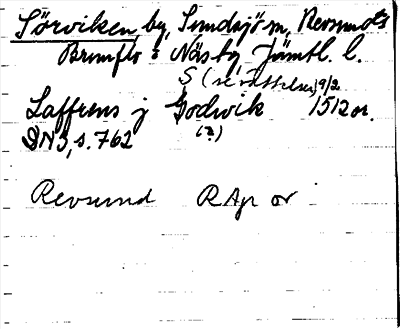 Sörviken, by, Sundsjö sn, Revsunds
Brunflo o Näs tg, Jämtl. l.
S (se rättelser) 9/2
Laffrens j Godwik 1512 or.
DN 3, s. 762 (?)
Revsund R Apr or